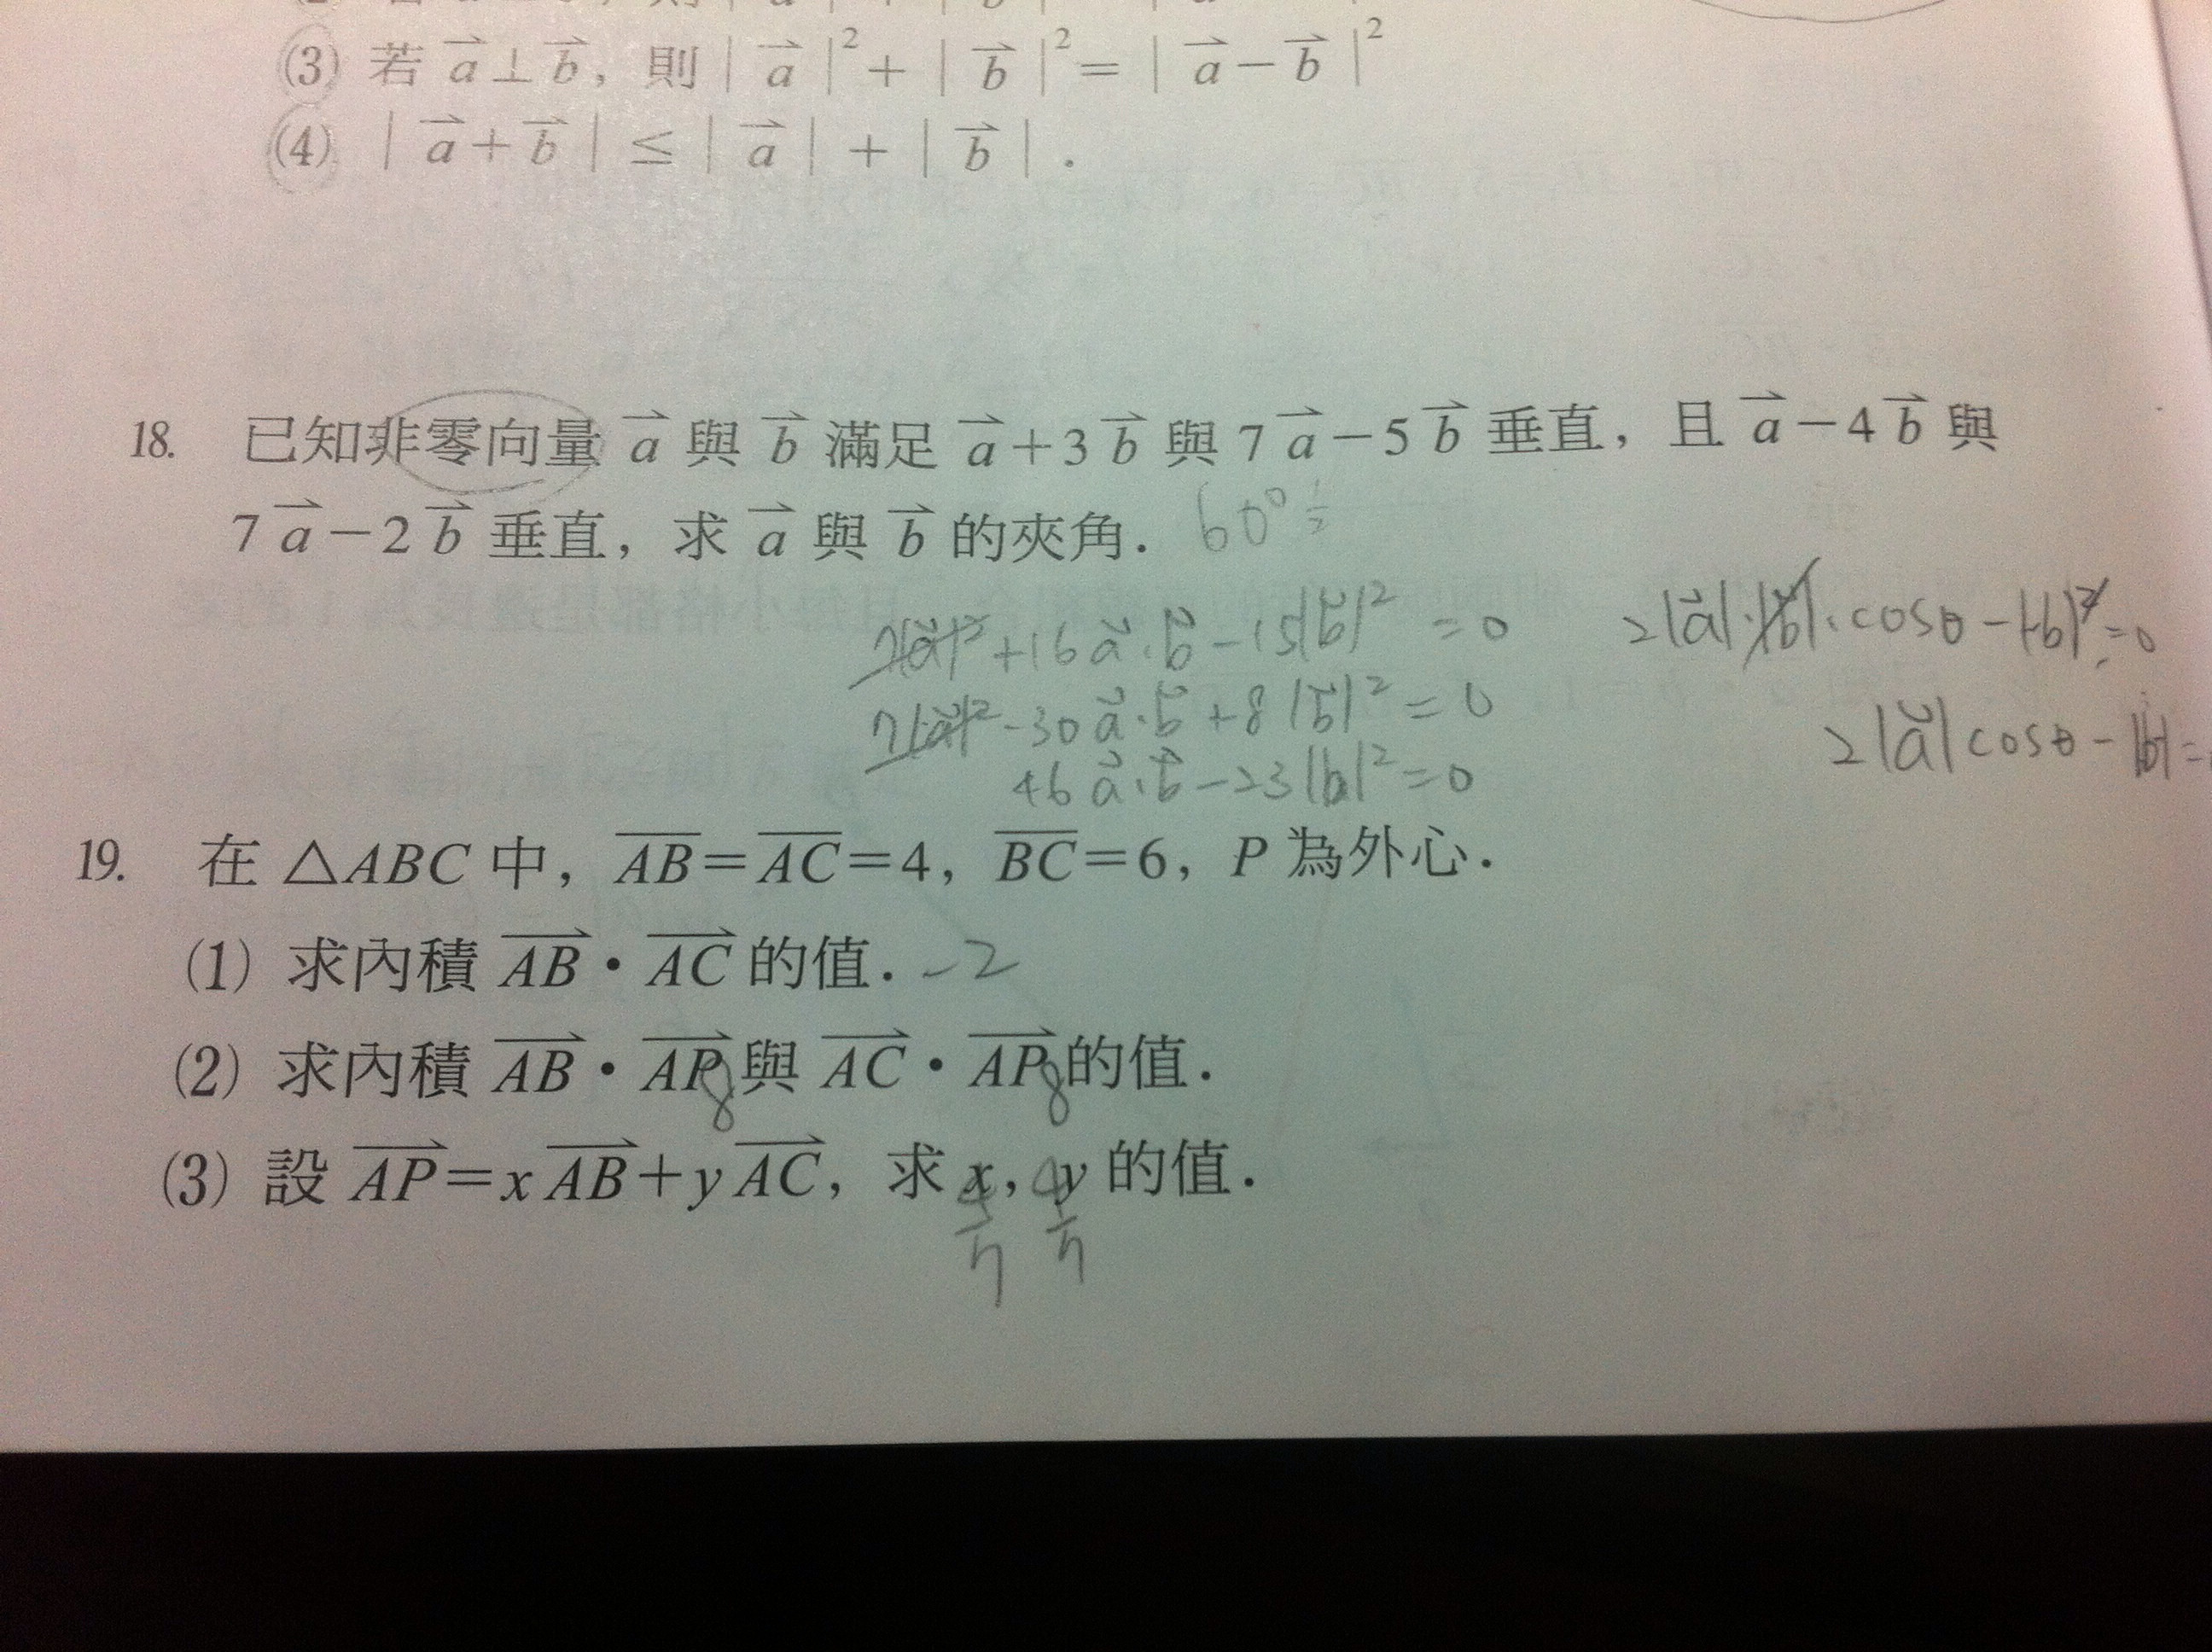 (3) 若 a⃗ ⊥ b⃗，則 | a⃗ |² + | b⃗ |² = | a⃗ − b⃗ |²
(4) | a⃗ + b⃗ | ≤ | a⃗ | + | b⃗ |．
18. 已知非零向量 a⃗ 與 b⃗ 滿足 a⃗ + 3 b⃗ 與 7 a⃗ − 5 b⃗ 垂直，且 a⃗ − 4 b⃗ 與
7 a⃗ − 2 b⃗ 垂直，求 a⃗ 與 b⃗ 的夾角． 60° ½
7|a⃗|² + 16 a⃗·b⃗ − 15|b⃗|² = 0
7|a⃗|² − 30 a⃗·b⃗ + 8|b⃗|² = 0
46 a⃗·b⃗ − 23|b|² = 0
2|a⃗|·|b⃗|·cosθ − |b|² = 0
2|a⃗| cosθ − |b| =
19. 在 △ABC 中，A̅B̅ = A̅C̅ = 4，B̅C̅ = 6，P 為外心．
(1) 求內積 AB⃗ · AC⃗ 的值． −2
(2) 求內積 AB⃗ · AP⃗ 與 AC⃗ · AP⃗ 的值．
8 8
(3) 設 AP⃗ = x AB⃗ + y AC⃗，求 x，y 的值．
4/7 4/7